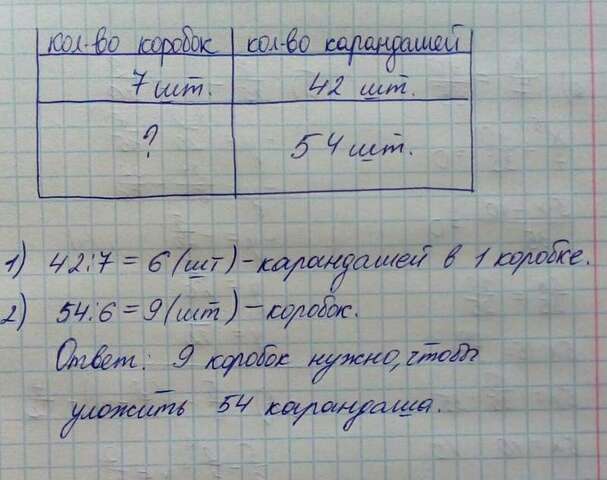 кол-во коробок кол-во карандашей
7 шт. 42 шт.
? 54 шт.
1) 42:7 = 6 (шт) - карандашей в 1 коробке.
2) 54:6 = 9 (шт) - коробок.
Ответ: 9 коробок нужно, чтобы
уложить 54 карандаша.